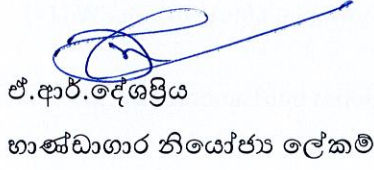 ඒ.ආර්.දේශප්‍රිය
භාණ්ඩාගාර නියෝජ්‍ය ලේකම්